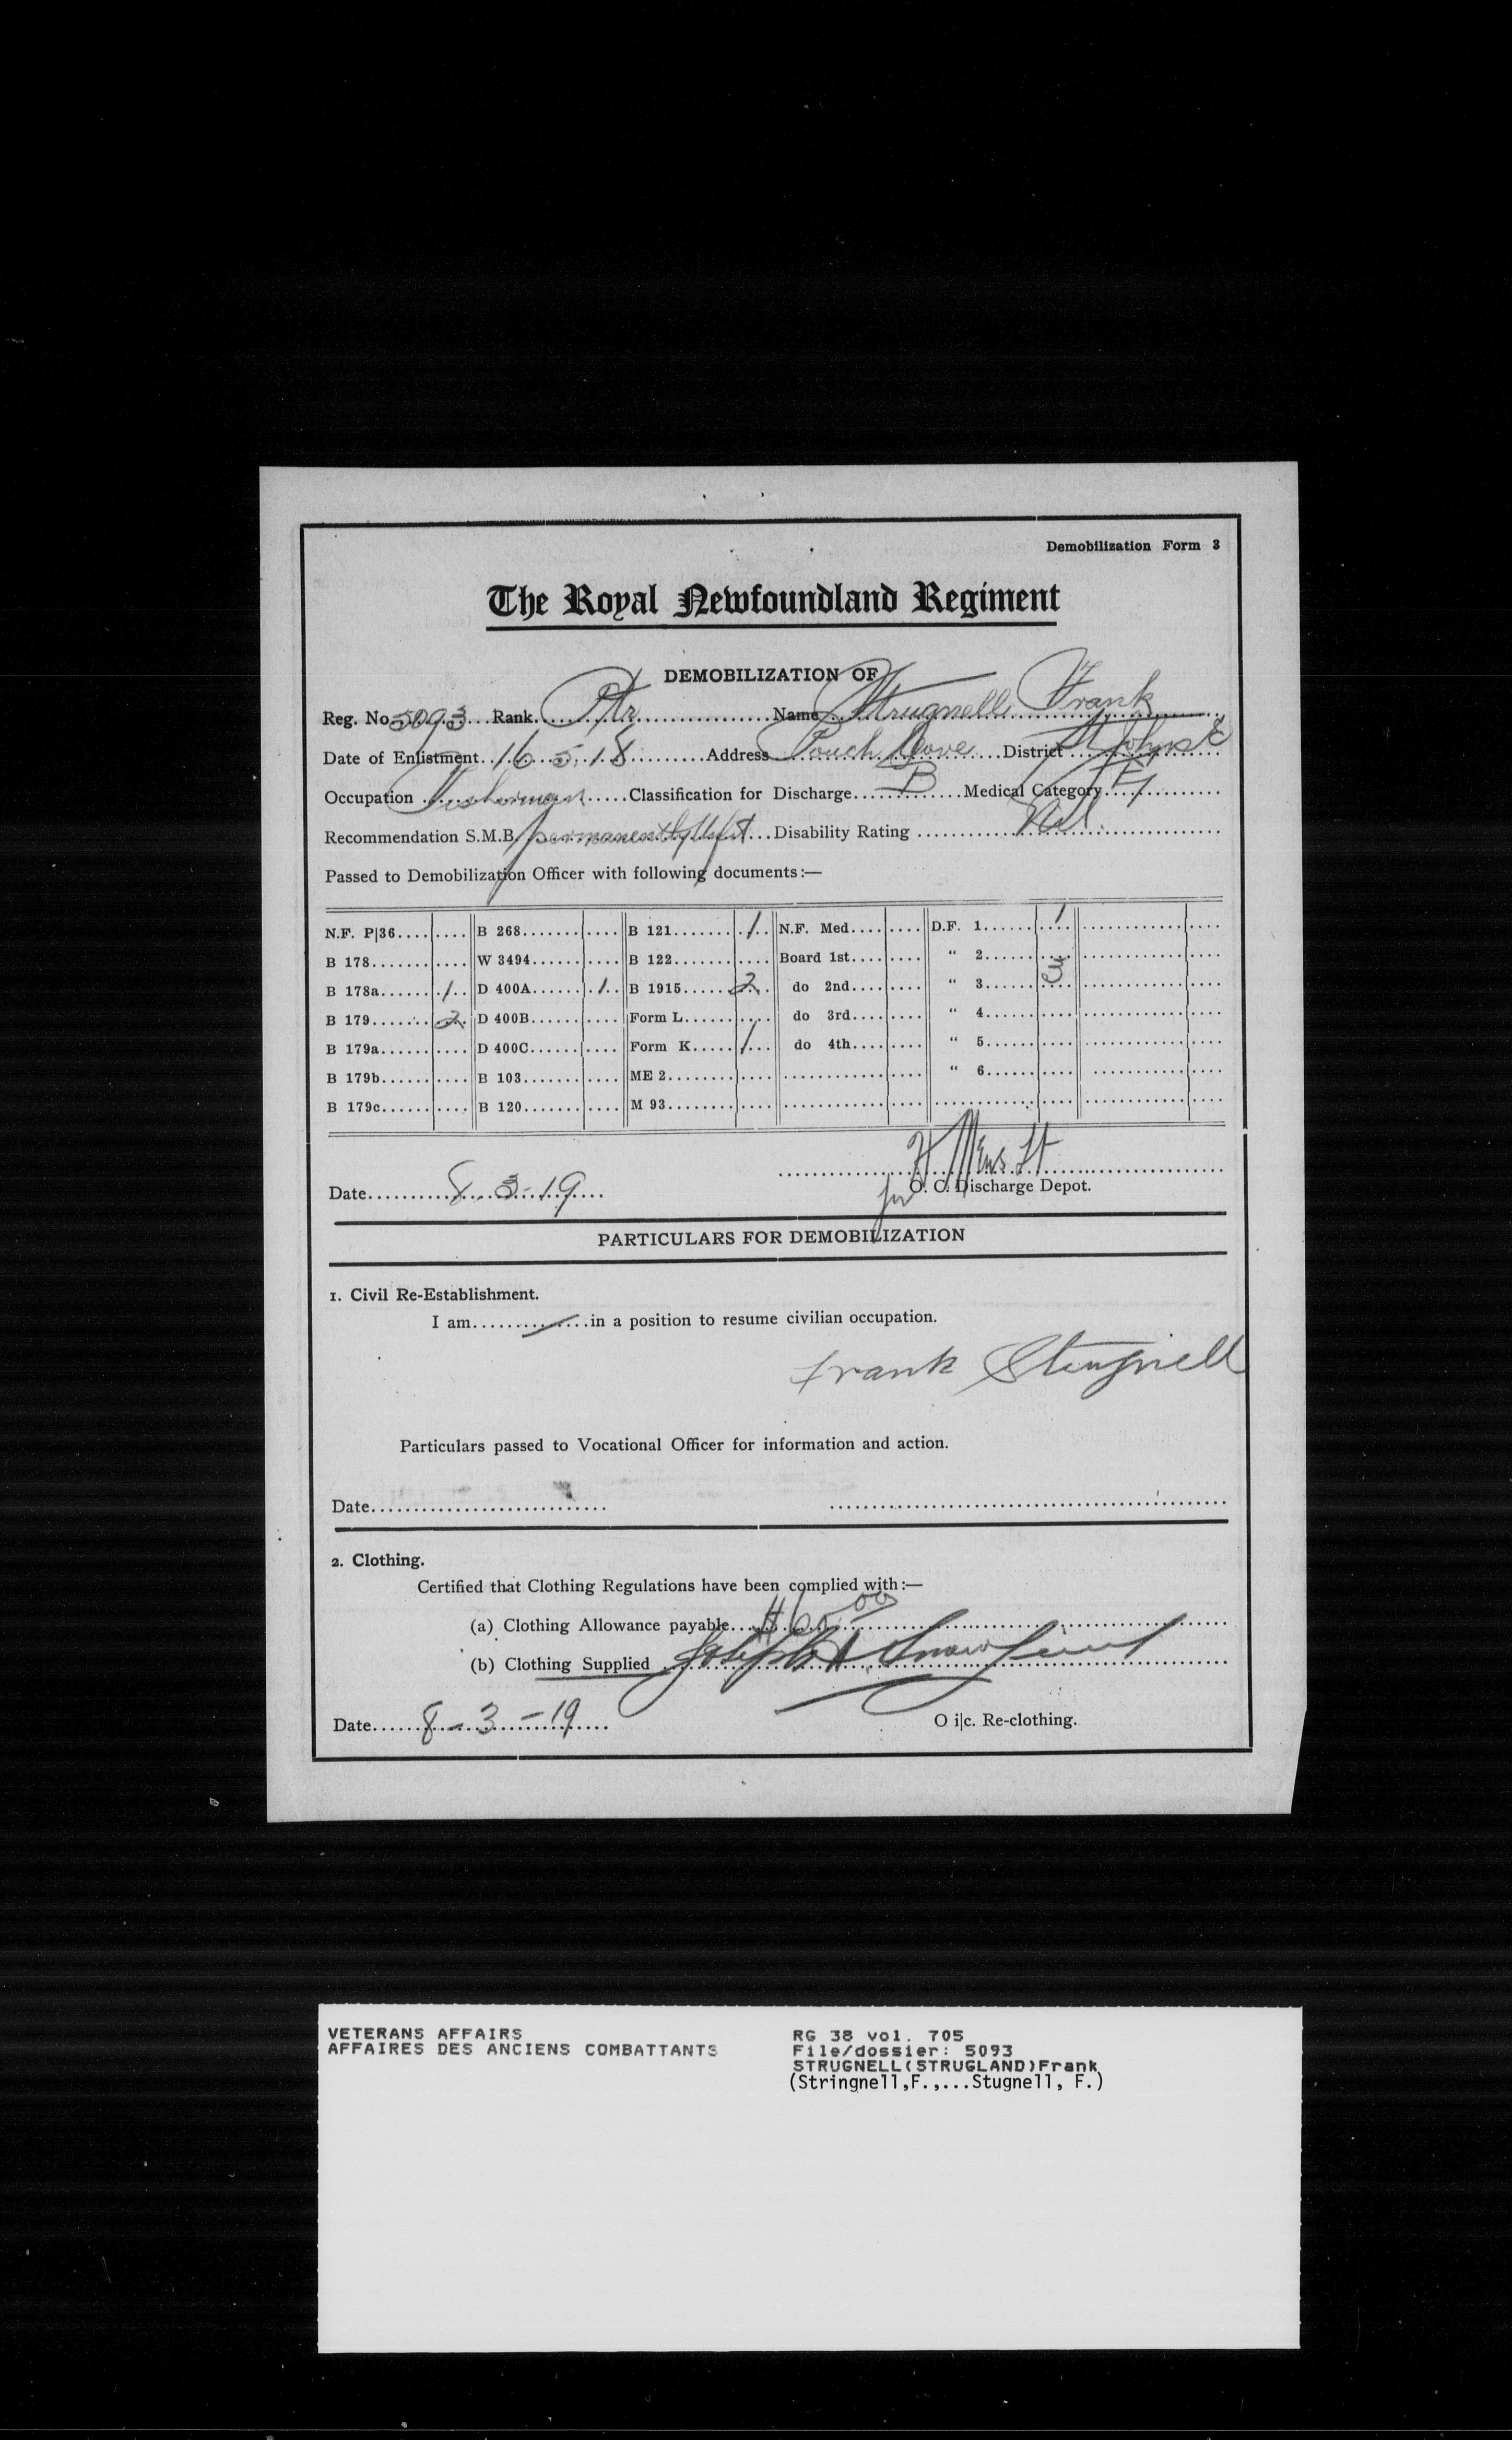 Demobilization Form 3
The Royal Newfoundland Regiment
DEMOBILIZATION OF
Reg. No. 5093 Rank Pte Name Strugnell Frank
Date of Enlistment 16.5.18 Address Pouch Cove District St Johns E
Occupation Fisherman Classification for Discharge B Medical Category E
Recommendation S.M.B. permanently unfit Disability Rating Nil
Passed to Demobilization Officer with following documents:—
N.F. P|36 B 268 B 121 1 N.F. Med. D.F. 1 1
B 178 W 3494 B 122 Board 1st " 2
B 178a 1 D 400A 1 B 1915 2 do 2nd " 3
B 179 2 D 400B Form L do 3rd " 4
B 179a D 400C Form K 1 do 4th " 5
B 179b B 103 ME 2 " 6
B 179c B 120 M 93
Date 8.3-19 for O. C. Discharge Depot.
PARTICULARS FOR DEMOBILIZATION
1. Civil Re-Establishment.
I am in a position to resume civilian occupation.
Frank Strugnell
Particulars passed to Vocational Officer for information and action.
Date
2. Clothing.
Certified that Clothing Regulations have been complied with:—
(a) Clothing Allowance payable $60.00
(b) Clothing Supplied Joseph Snow
Date 8-3-19 O i|c. Re-clothing.
VETERANS AFFAIRS RG 38 vol. 705
AFFAIRES DES ANCIENS COMBATTANTS File/dossier: 5093
STRUGNELL(STRUGLAND)Frank
(Stringnell,F.,...Stugnell, F.)